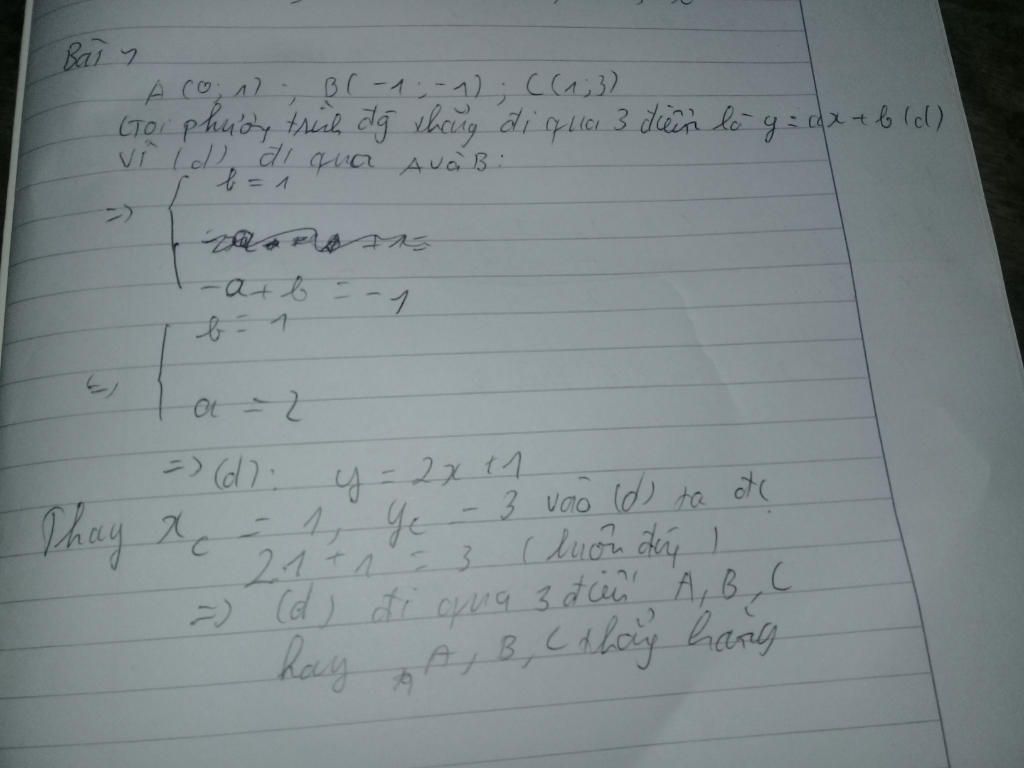 Bài 1
A (0; 1) ; B( -1; -1) ; C (1; 3)
Gọi phương trình đg thẳng đi qua 3 điểm là y = ax + b (d)
Vì (d) đi qua A và B:
b = 1
=>
-a + b = -1
b = 1
<=>
a = 2
=> (d): y = 2x + 1
Thay x_C = 1, y_C = 3 vào (d) ta đc
2.1 + 1 = 3 (luôn đúng)
=> (d) đi qua 3 điểm A, B, C
hay A, B, C thẳng hàng